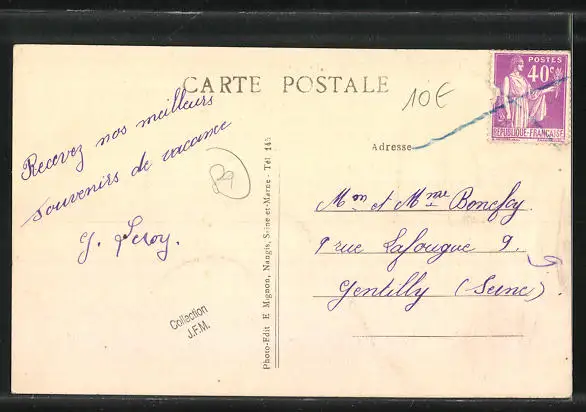 CARTE POSTALE
10€
POSTES
40c
REPUBLIQUE-FRANÇAISE
Recevez nos meilleurs
souvenirs de vacance
J. Leroy.
Collection
J.F.M.
Photo-Edit E Mignon, Nangis, Seine-et-Marne - Tél 145
Adresse
Mon et Mme Bonefoy
9 rue Lafouge 9.
Gentilly (Seine).